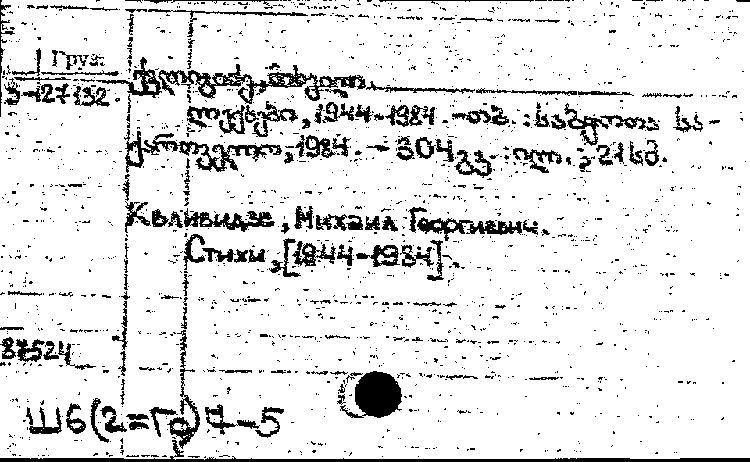 Груз.
3-127132.
ქვლივიძე, მიხეილი.
ლექსები, 1944-1984. - თბ. : საბჭოთა სა-
ქართველო, 1984. - 304 გვ. : ილ. ; 21 სმ.
Квливидзе, Михаил Георгиевич.
Стихи, [1944-1984].
87524
Ш6(2=Гр)7-5